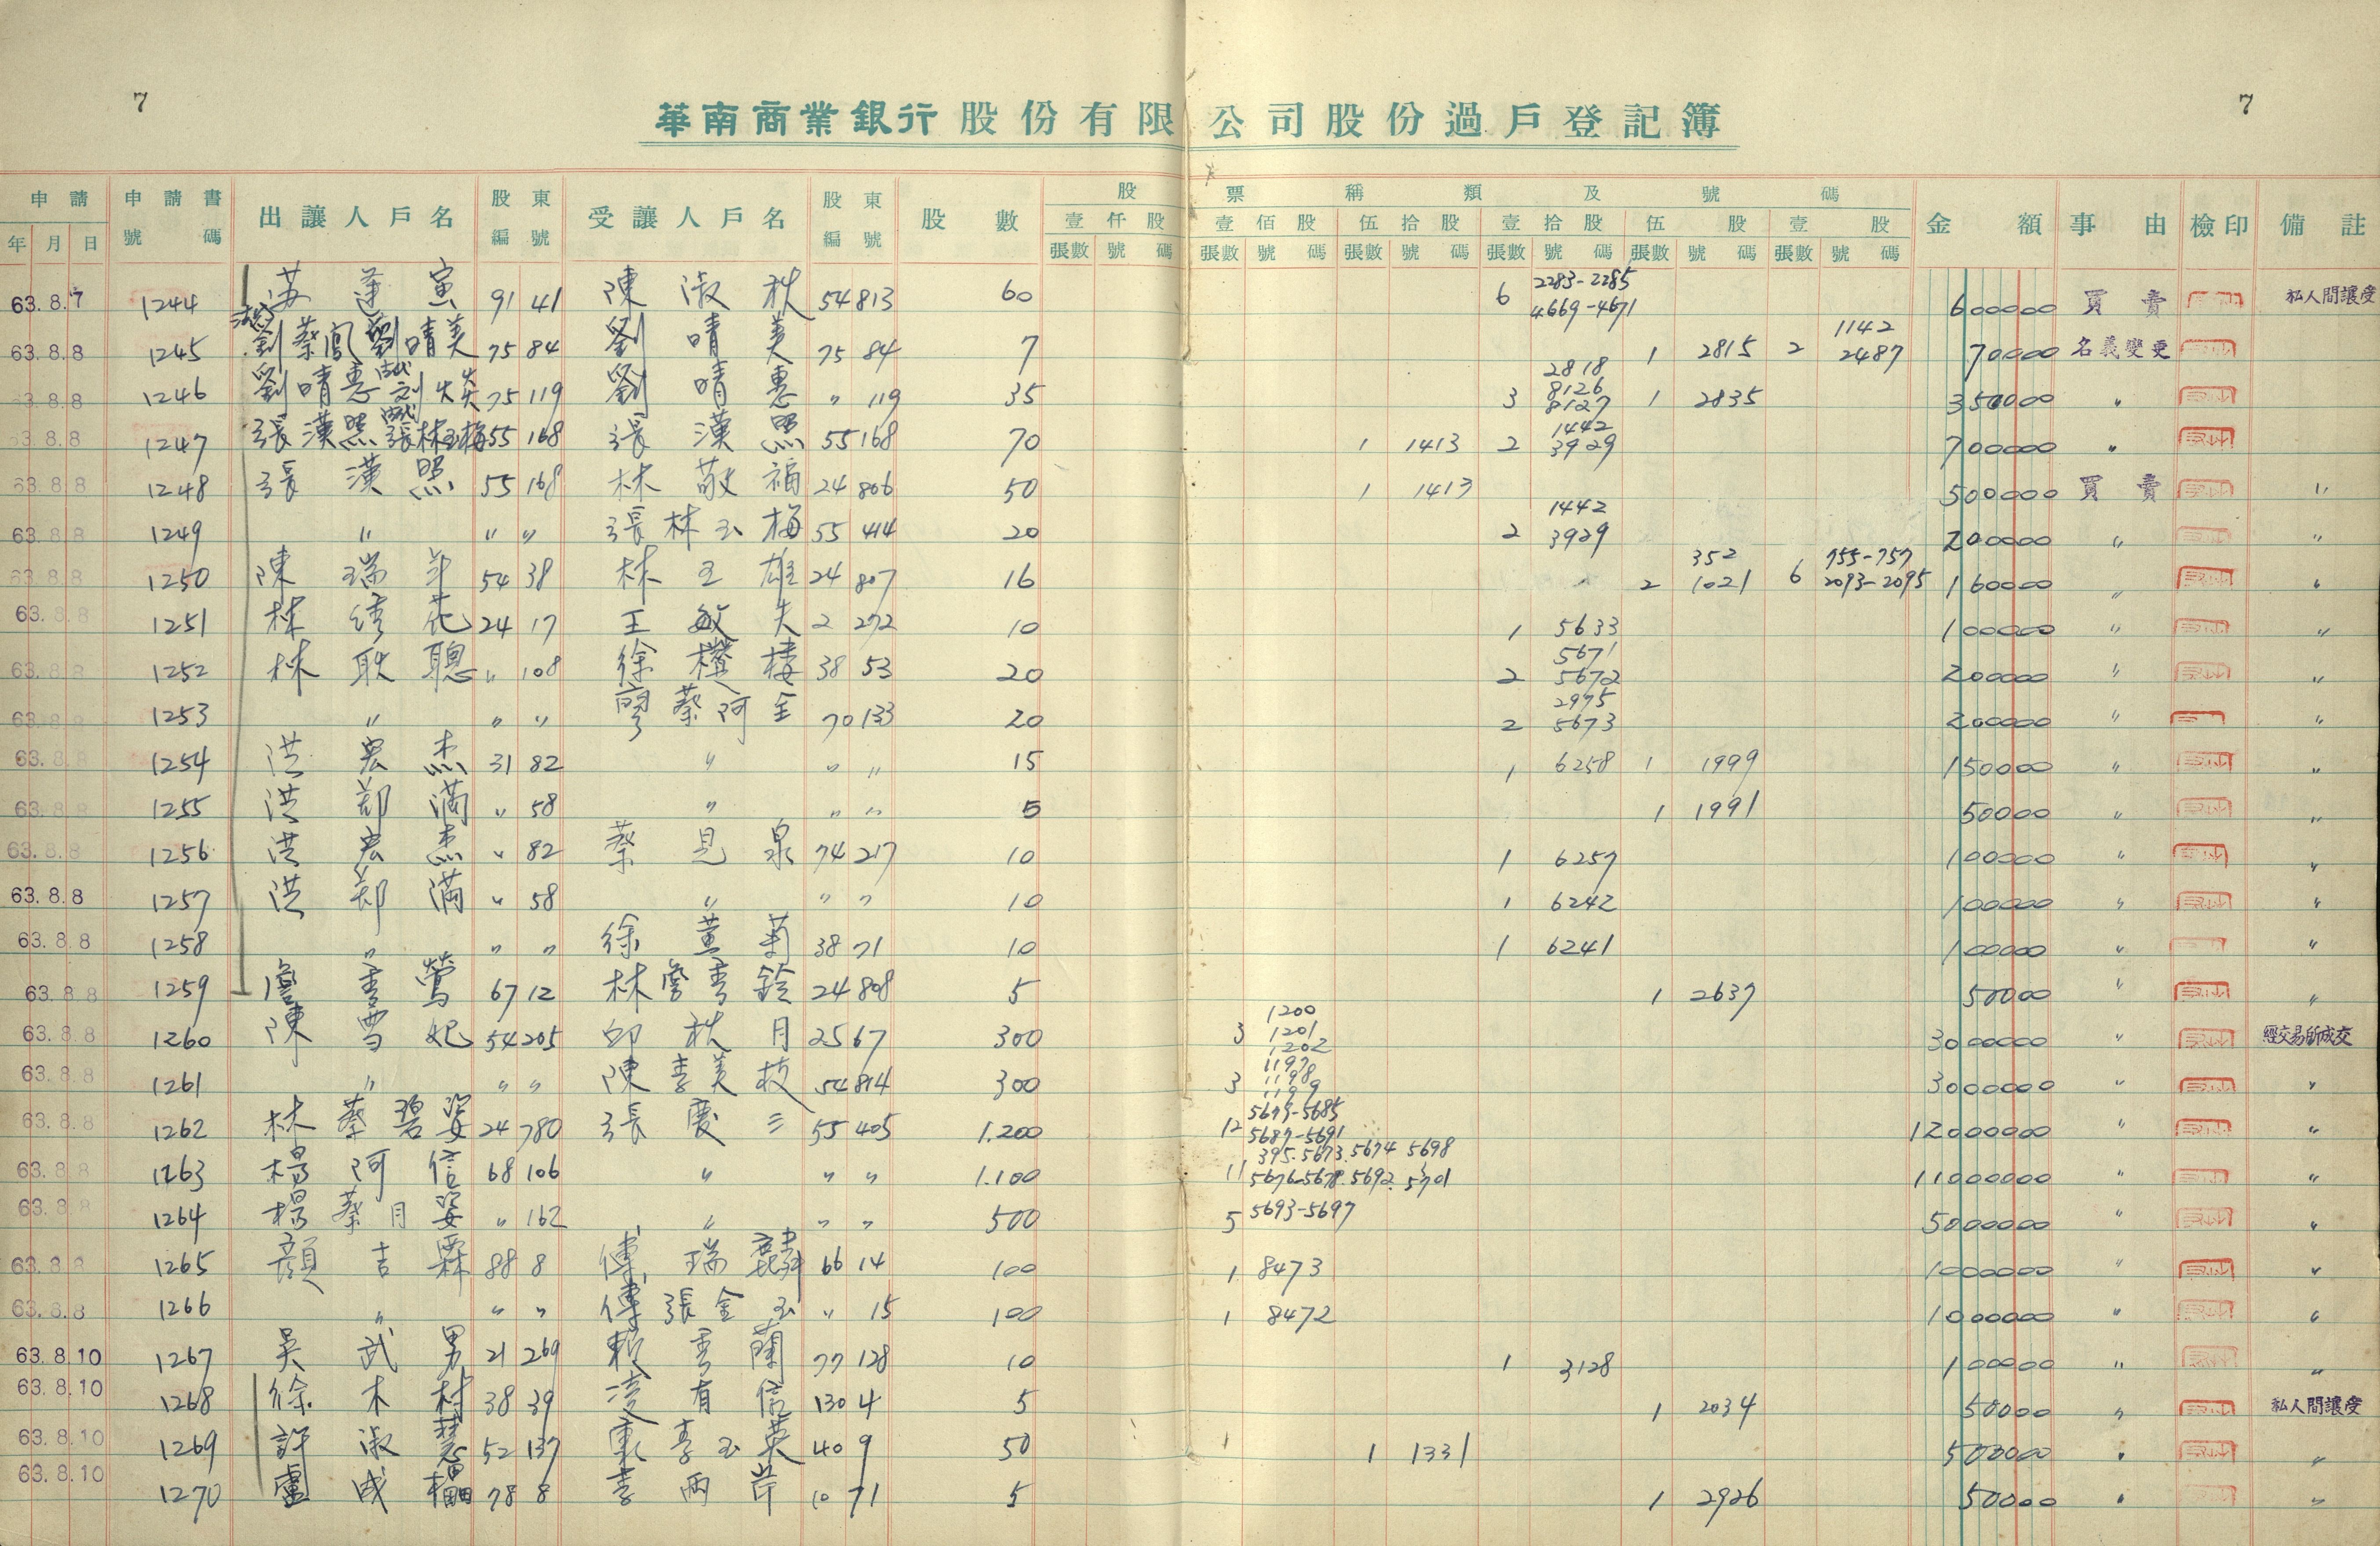 7
7
華南商業銀行股份有限公司股份過戶登記簿
申請 申請書 出讓人戶名 股東 受讓人戶名 股東 股數 股票稱類及號碼 金額 事由 檢印 備註
年 月 日 號碼 編號 編號 壹仟股 壹佰股 伍拾股 壹拾股 伍股 壹股
張數 號碼 張數 號碼 張數 號碼 張數 號碼 張數 號碼 張數 號碼
63.8.7 1244 苏蓮寅 91 41 陳淑秋 54 813 60 6 2283-2285 4669-4671 600000 買賣 私人間讓受
63.8.8 1245 劉蔡鳳 劉晴美 75 84 劉晴美 75 84 7 1 2815 2 1142 2487 70000 名義變更
63.8.8 1246 劉晴惠 75 119 劉晴惠 〃 119 35 3 2818 8126 8127 1 2835 350000 〃
63.8.8 1247 張漢照 張林玉梅 55 168 張漢照 55 168 70 1 1413 2 1442 3929 700000 〃
63.8.8 1248 張漢照 55 168 林敬福 24 806 50 1 1413 500000 買賣 〃
63.8.8 1249 〃 〃 〃 張林玉梅 55 414 20 2 1442 3929 200000 〃 〃
63.8.8 1250 陳瑞 54 38 林玉雄 24 807 16 2 352 1021 6 755-757 2093-2095 160000 〃 〃
63.8.8 1251 林綉花 24 17 王敏夫 2 272 10 1 5633 100000 〃 〃
63.8.8 1252 林耿聰 〃 108 徐樓 38 53 20 2 5671 5672 200000 〃 〃
63.8.8 1253 〃 〃 〃 廖蔡阿金 70 133 20 2 2975 5673 200000 〃 〃
63.8.8 1254 洪宏杰 31 82 〃 〃 〃 15 1 6258 1 1999 150000 〃 〃
63.8.8 1255 洪鄭滿 〃 58 〃 〃 〃 5 1 1991 50000 〃 〃
63.8.8 1256 洪宏杰 〃 82 蔡見泉 74 217 10 1 6257 100000 〃 〃
63.8.8 1257 洪鄭滿 〃 58 〃 〃 〃 10 1 6242 100000 〃 〃
63.8.8 1258 〃 〃 〃 徐黄菊 38 71 10 1 6241 100000 〃 〃
63.8.8 1259 詹秀鶯 67 12 林詹秀鈴 24 808 5 1 2637 50000 〃 〃
63.8.8 1260 陳雪妃 54 205 邱秋月 25 67 300 3 1200 1201 1202 3000000 〃 經交易所成交
63.8.8 1261 〃 〃 〃 陳李美枝 54 814 300 3 1197 1198 1199 3000000 〃 〃
63.8.8 1262 林蔡碧姿 24 780 張慶三 55 405 1.200 12 5679-5685 5687-5691 12000000 〃 〃
63.8.8 1263 楊阿信 68 106 〃 〃 〃 1.100 11 395.5673.5674 5698 5676-5678.5692. 5701 11000000 〃 〃
63.8.8 1264 楊蔡月姿 〃 162 〃 〃 〃 500 5 5693-5697 5000000 〃 〃
63.8.8 1265 顏吉霖 88 8 傅瑞麟 66 14 100 1 8473 1000000 〃 〃
63.8.8 1266 〃 〃 〃 傅張金玉 〃 15 100 1 8472 1000000 〃 〃
63.8.10 1267 吳武男 21 269 賴秀蘭 77 128 10 1 3128 100000 〃 〃
63.8.10 1268 徐木村 38 39 凌有信 130 4 5 1 2034 50000 〃 私人間讓受
63.8.10 1269 許淑慧 52 137 李玉英 40 9 50 1 1331 500000 〃 〃
63.8.10 1270 盧成 78 8 李兩 10 71 5 1 2926 50000 〃 〃